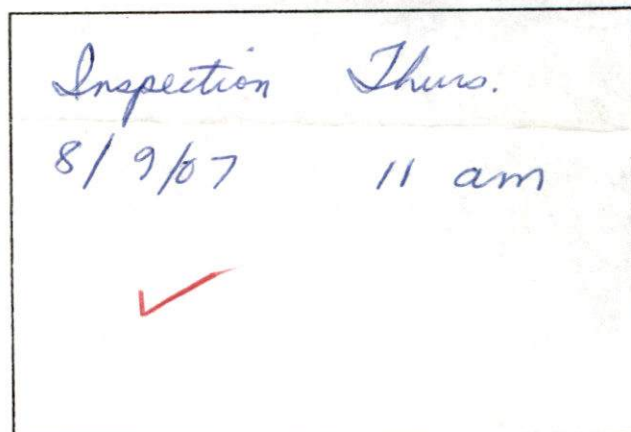 Inspection Thurs.
8/9/07 11 am